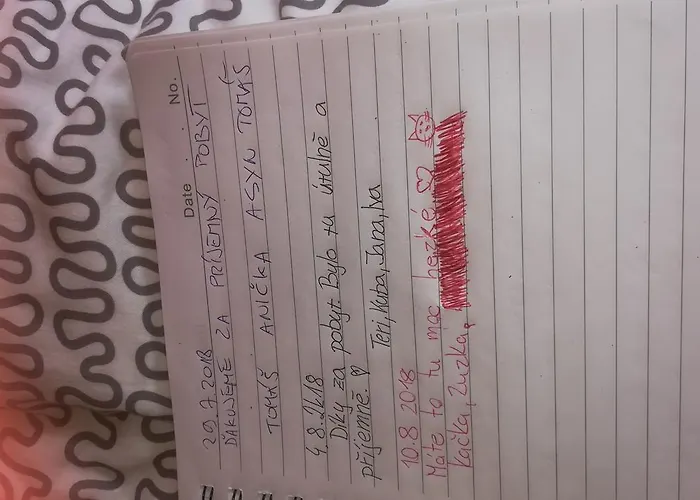 Date No.
29.7.2018
ĎAKUJEME ZA PRÍJEMNÝ POBYT
TOMÁŠ ANIČKA A SYN TOMÁŠ
4.8.2k18
Díky za pobyt. Bylo tu útulně a
příjemně. ♡ Teri, Kuba, Jana, Iva
10.8 2018
Máte to tu moc hezké ♡
Kačka, Zuzka,